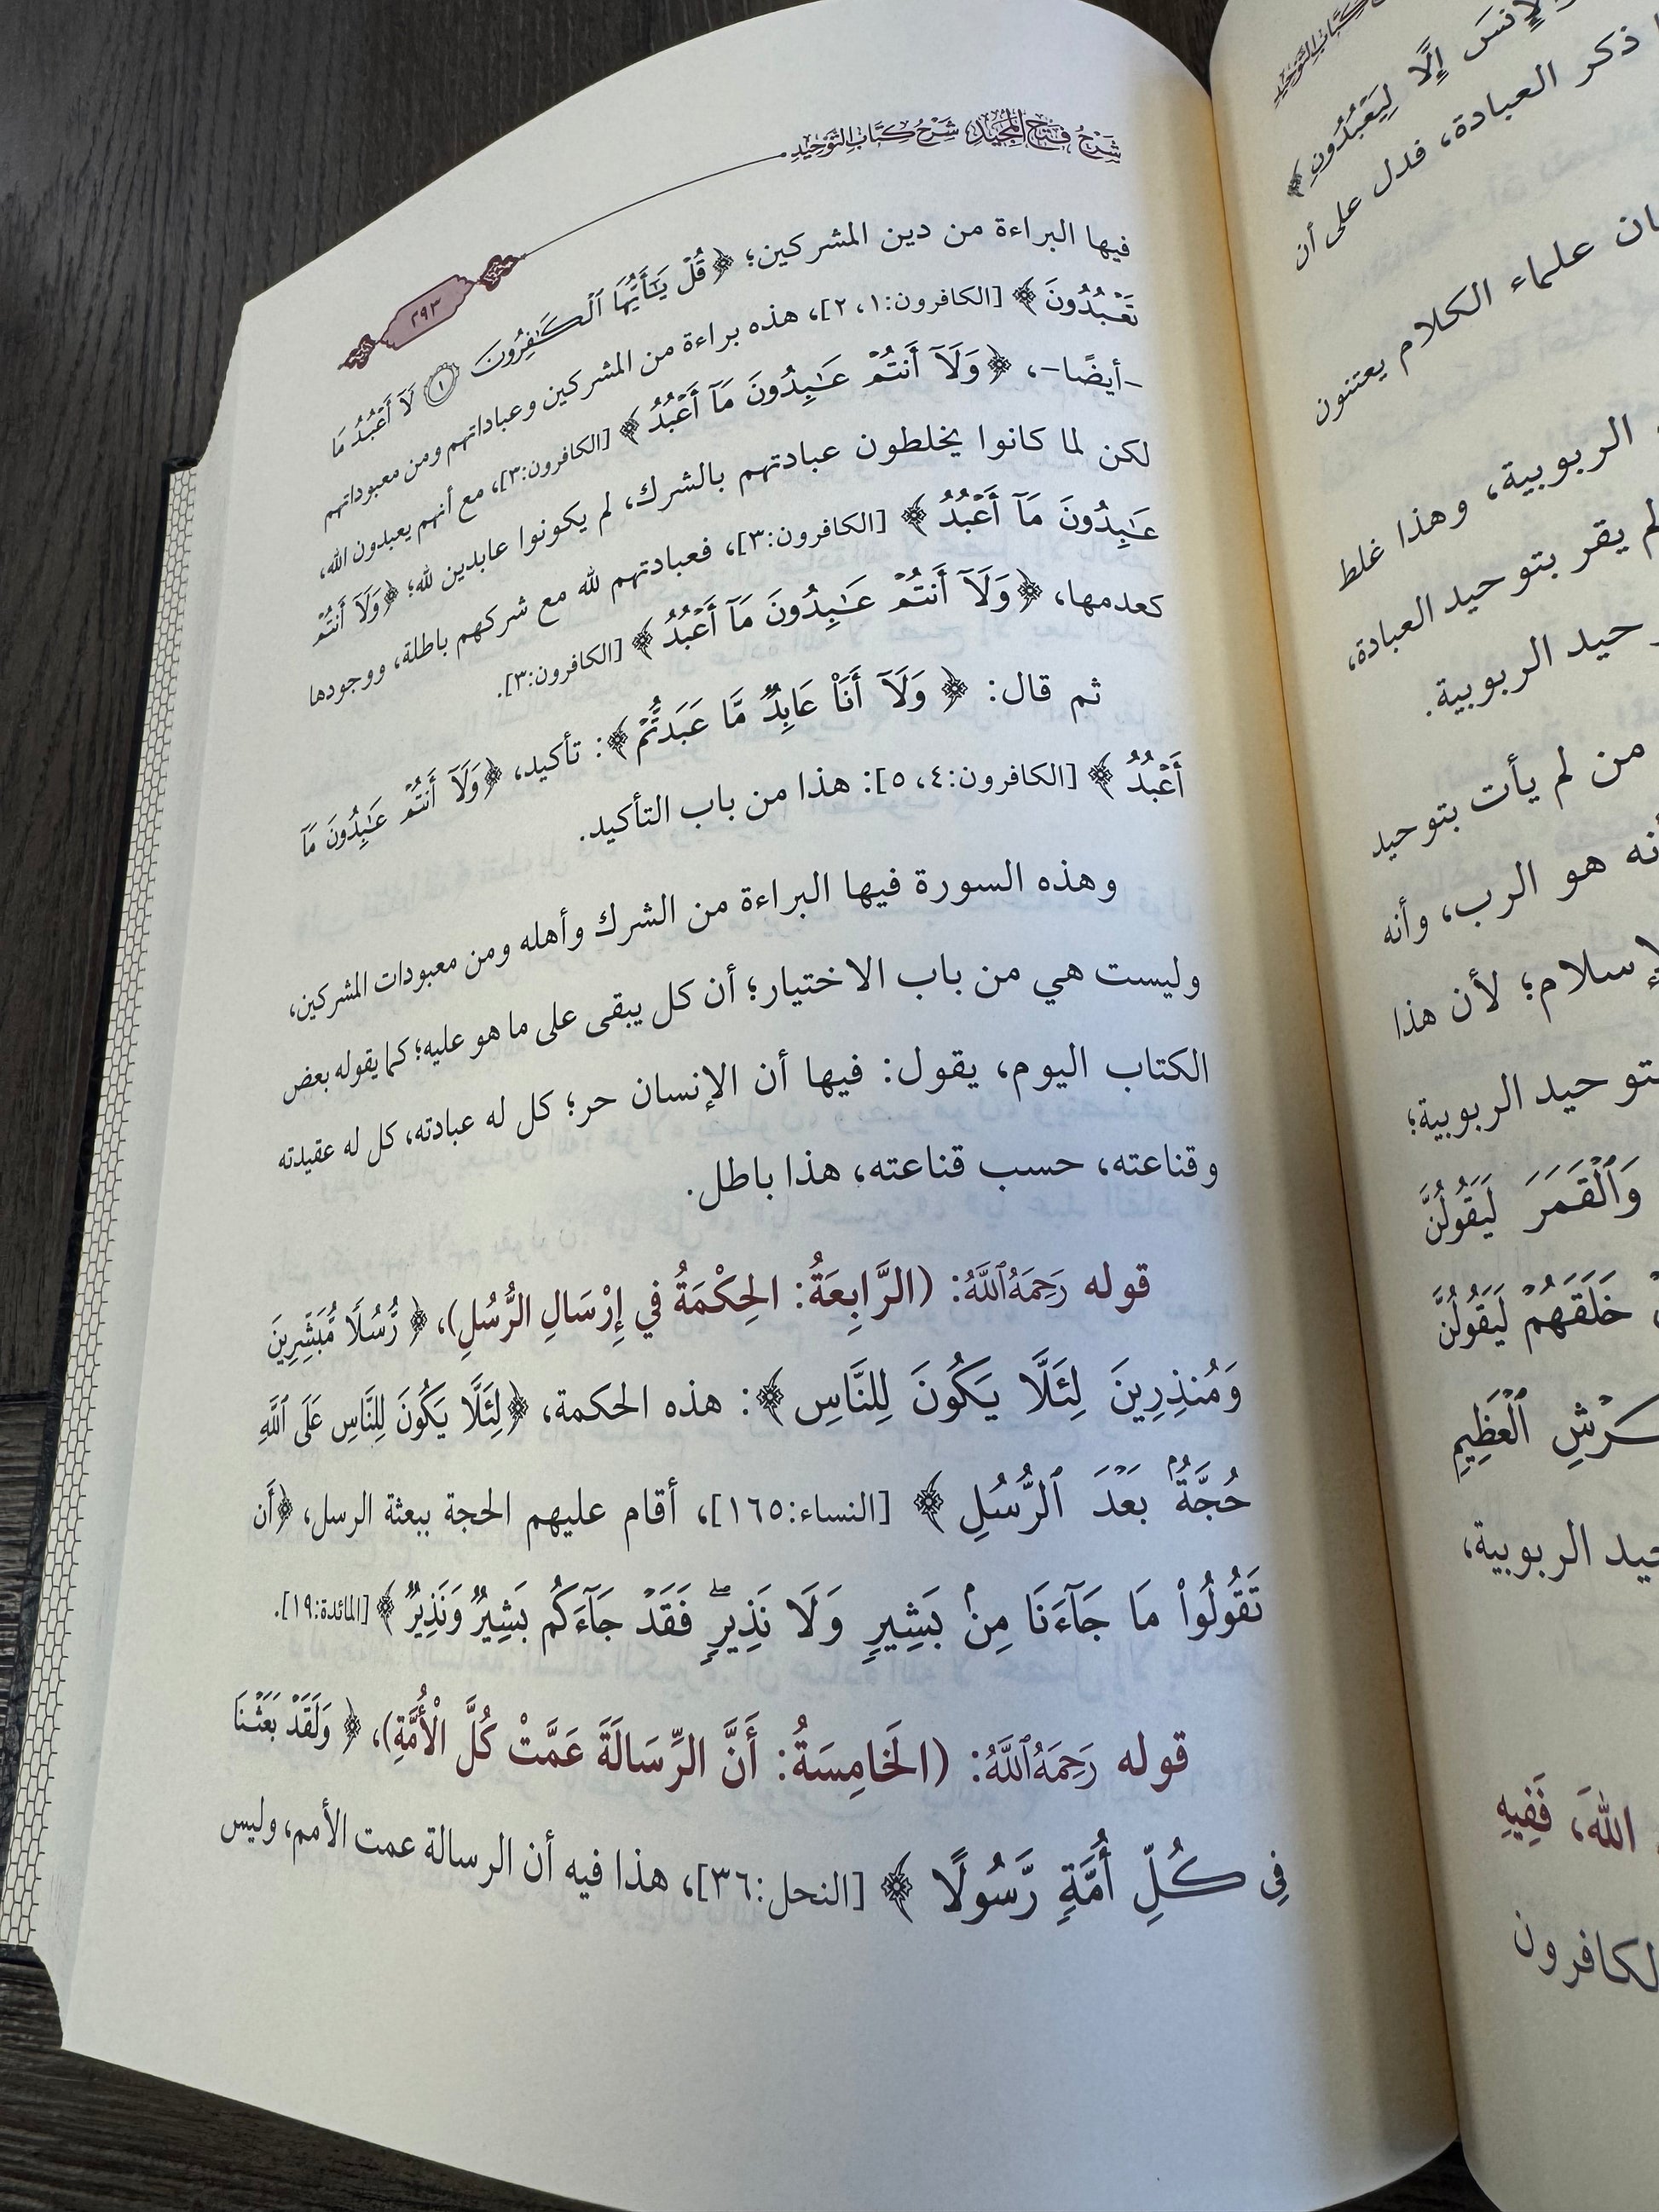 شَرْحُ فَتْحِ المَجِيدِ شَرْحِ كِتَابِ التَّوْحِيدِ
٢٩٣
فيها البراءة من دين المشركين؛ ﴿قُلْ يَٰٓأَيُّهَا ٱلْكَٰفِرُونَ ١ لَآ أَعْبُدُ مَا
تَعْبُدُونَ﴾ [الكافرون:١، ٢]، هذه براءة من المشركين وعباداتهم ومن معبوداتهم
-أيضًا-، ﴿وَلَآ أَنتُمْ عَٰبِدُونَ مَآ أَعْبُدُ﴾ [الكافرون:٣]، مع أنهم يعبدون الله،
لكن لما كانوا يخلطون عبادتهم بالشرك، لم يكونوا عابدين لله؛ ﴿وَلَآ أَنتُمْ
عَٰبِدُونَ مَآ أَعْبُدُ﴾ [الكافرون:٣]، فعبادتهم لله مع شركهم باطلة، ووجودها
كعدمها، ﴿وَلَآ أَنتُمْ عَٰبِدُونَ مَآ أَعْبُدُ﴾ [الكافرون:٣].
ثم قال: ﴿وَلَآ أَنَا۠ عَابِدٌ مَّا عَبَدتُّمْ﴾: تأكيد، ﴿وَلَآ أَنتُمْ عَٰبِدُونَ مَآ
أَعْبُدُ﴾ [الكافرون:٤، ٥]: هذا من باب التأكيد.
وهذه السورة فيها البراءة من الشرك وأهله ومن معبودات المشركين،
وليست هي من باب الاختيار؛ أن كل يبقى على ما هو عليه؛ كما يقوله بعض
الكتاب اليوم، يقول: فيها أن الإنسان حر؛ كل له عبادته، كل له عقيدته
وقناعته، حسب قناعته، هذا باطل.
قوله رَحِمَهُ ٱللَّهُ: (الرَّابِعَةُ: الحِكْمَةُ فِي إِرْسَالِ الرُّسُلِ)، ﴿رُّسُلًا مُّبَشِّرِينَ
وَمُنذِرِينَ لِئَلَّا يَكُونَ لِلنَّاسِ﴾: هذه الحكمة، ﴿لِئَلَّا يَكُونَ لِلنَّاسِ عَلَى ٱللَّهِ
حُجَّةٌۢ بَعْدَ ٱلرُّسُلِ﴾ [النساء:١٦٥]، أقام عليهم الحجة ببعثة الرسل، ﴿أَن
تَقُولُوا۟ مَا جَآءَنَا مِنۢ بَشِيرٍ وَلَا نَذِيرٍ ۖ فَقَدْ جَآءَكُم بَشِيرٌ وَنَذِيرٌ﴾ [المائدة:١٩].
قوله رَحِمَهُ ٱللَّهُ: (الخَامِسَةُ: أَنَّ الرِّسَالَةَ عَمَّتْ كُلَّ الْأُمَّةِ)، ﴿وَلَقَدْ بَعَثْنَا
فِى كُلِّ أُمَّةٍ رَّسُولًا﴾ [النحل:٣٦]، هذا فيه أن الرسالة عمت الأمم، وليس
إِلَّا لِيَعْبُدُونِ﴾
ذكر العبادة، فدل على أن
علماء الكلام يعتنون
الربوبية، وهذا غلط
يقر بتوحيد العبادة،
الربوبية.
من لم يأت بتوحيد
هو الرب، وأنه
لأن هذا
الربوبية؛
وَٱلْقَمَرَ لَيَقُولُنَّ
خَلَقَهُمْ لَيَقُولُنَّ
ٱلْعَظِيمِ
الربوبية،
اللهَ، فَفِيهِ